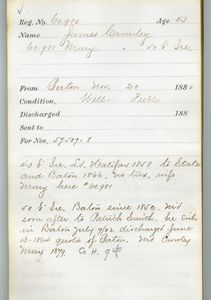 Reg. No. 60.980 Age 43
Name James Crowley
60.981 Mary " 50 N Ire.
From Boston Nov. 20 188
Condition, Well. Feeble
Discharged 188
Sent to
For Nos. 57.507-8
43 N Ire. Ld. Halifax 1858 to State
and Boston 1866. No tax, wife
Mary here 60.981.
50 N Ire. Boston since 1850. M'd
soon after to Patrick Smith, he Enl.
in Boston July 9/62 discharged June
13-1864 quota of Boston. M'd Crowley
May 1879.